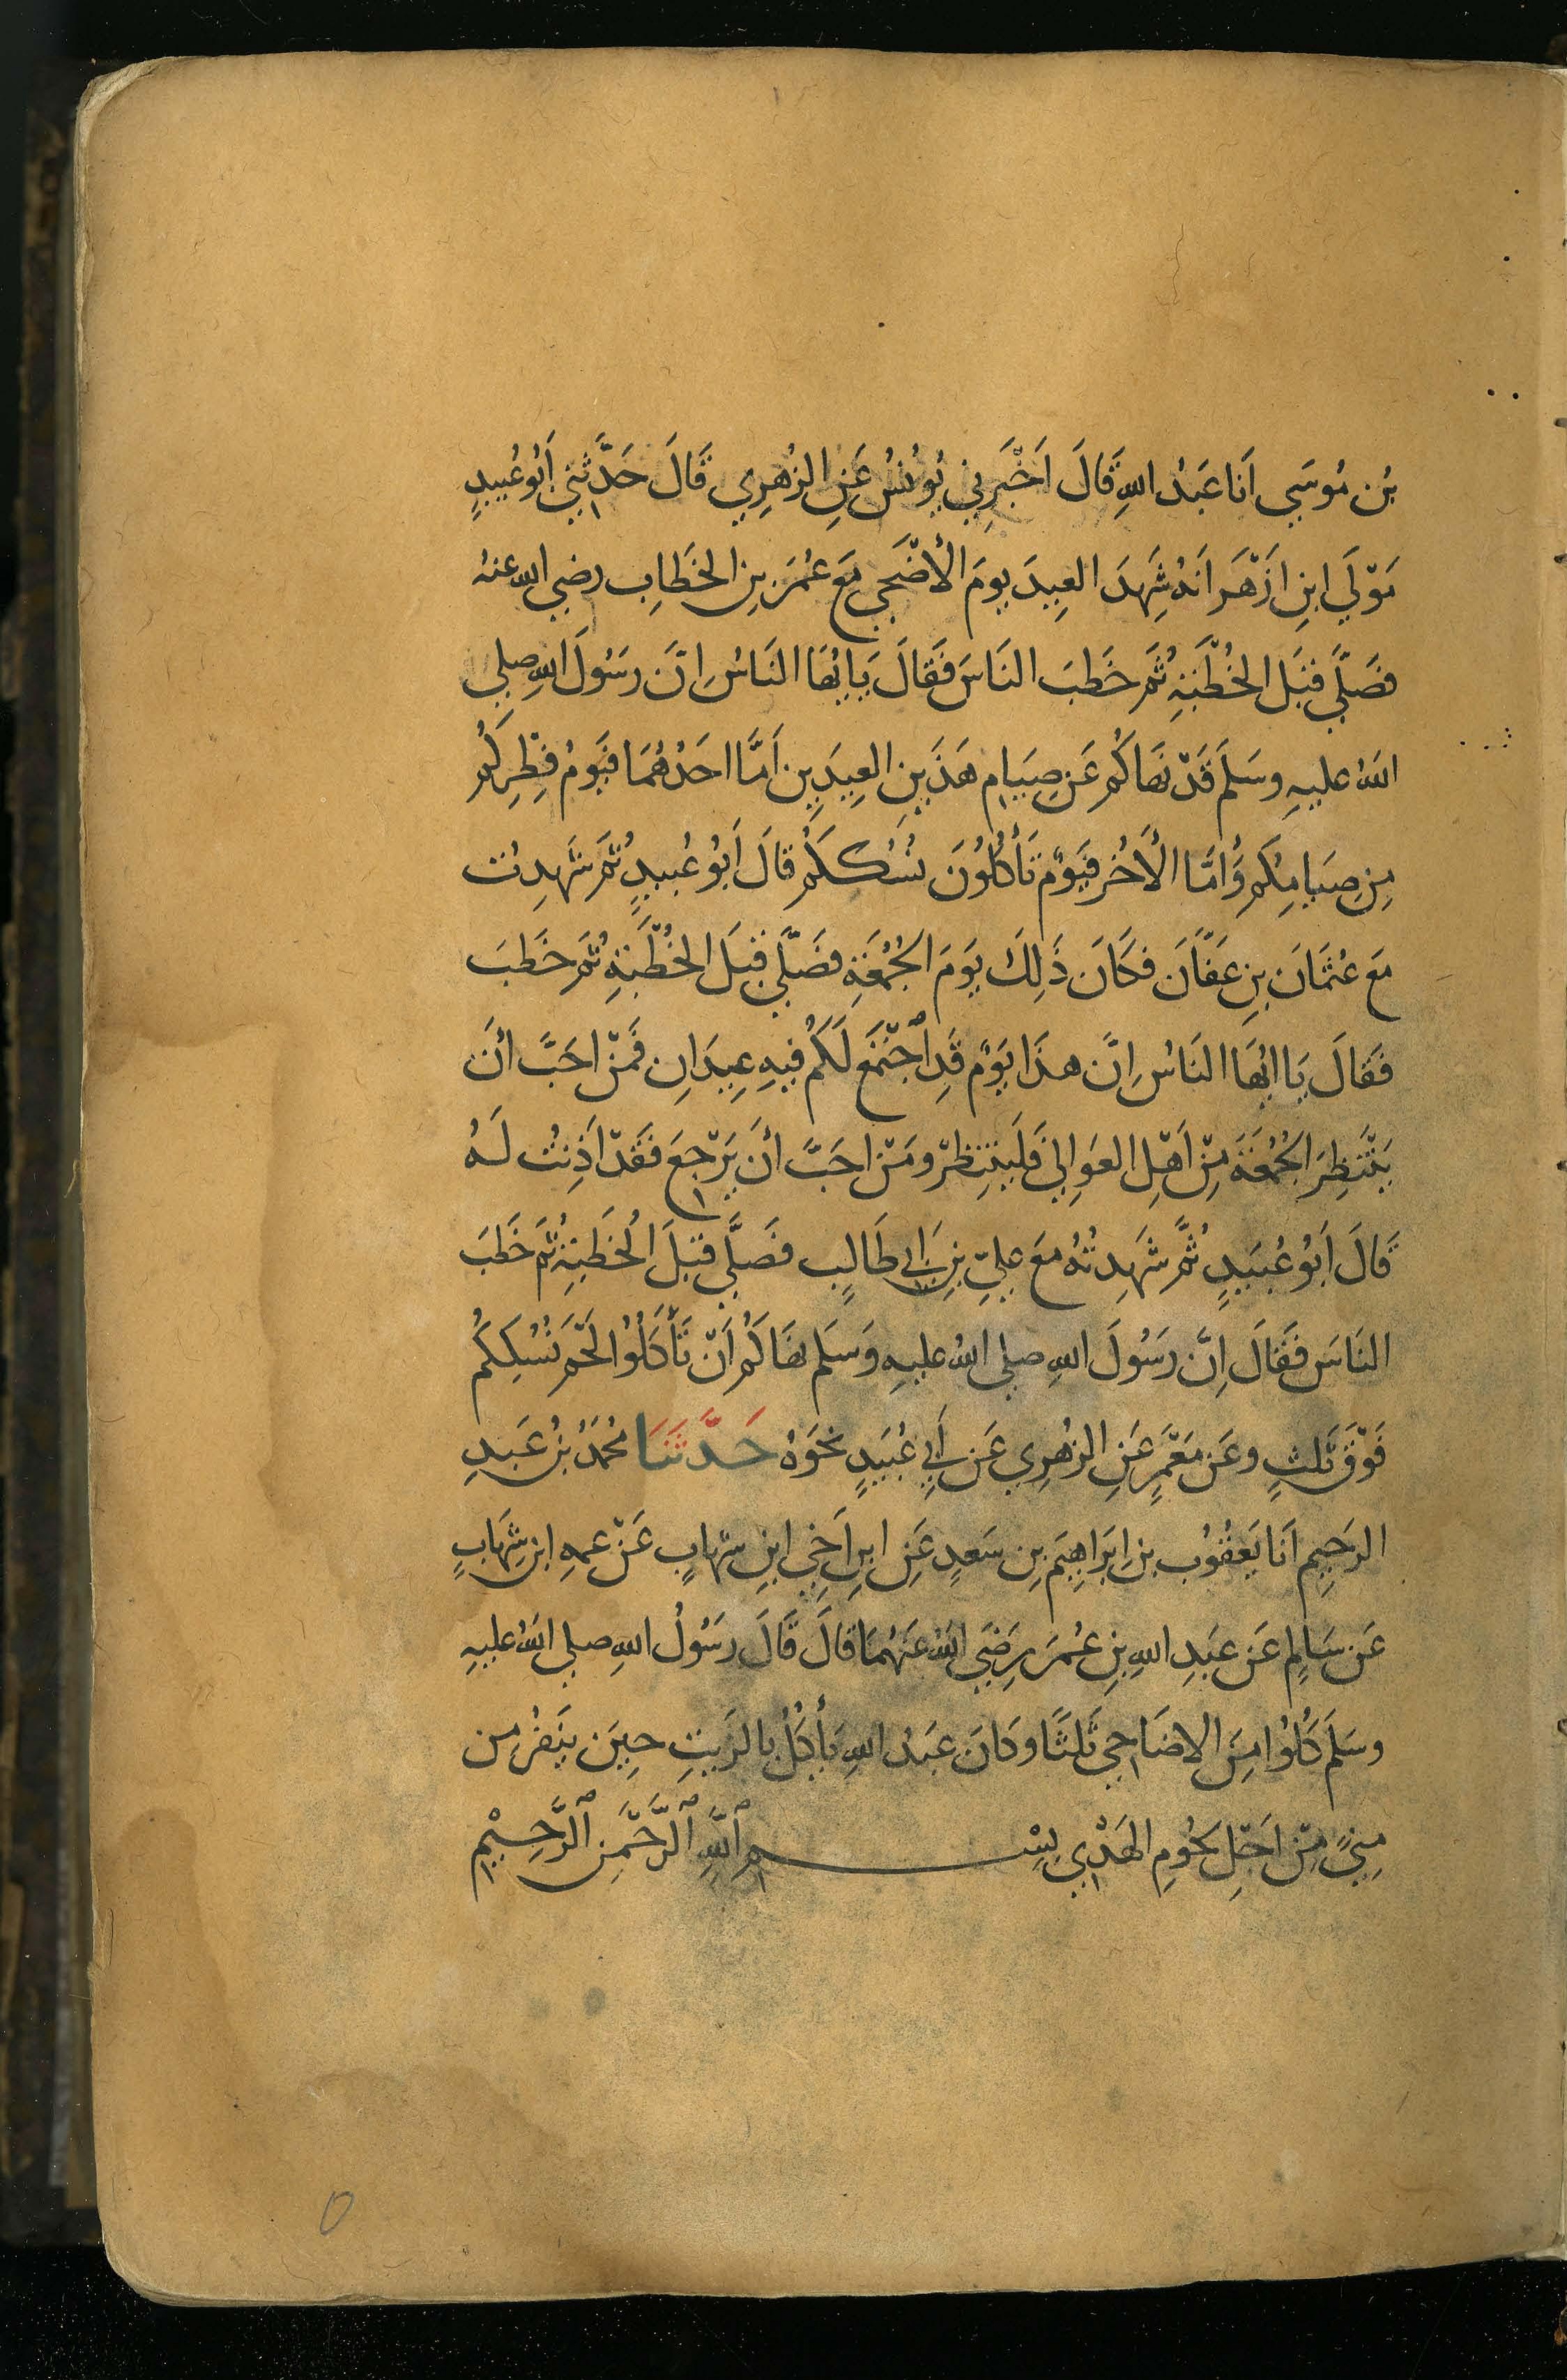 بْن مُوسَي اَنَا عَبْدُ اللهِ قَالَ اَخْبَرِنِي يُونُسُ عَنِ الزُهرِي قَالَ حَدَّثَنِي اَبُو عُبيدٍ
مَوْلَي ابنِ ازْهَر انَهُ شَهِدَ العِيدَ يومَ الأضْحَي مَع عُمَرَ بنِ الخَطَابِ رضي الله عنه
فصَلَّي قبَل الخُطْبَةِ ثُمَ خَطبَ النَاسَ فَقالَ يَايُها النَاسُ اِنّ رسَُولَ اللهِ صلي
اللهُ عليهِ وسَلمَ قَدْ نهَاكُم عَن صِيَامِ هَذَينِ العِيدَينِ اَمَّا احَدُهُمَا فيَومُ فِطْرِكُم
مِن صِيَامِكُم وَأمّا الأَخُر فيَومٌ تَأْكُلُونَ نُسُككُم قالَ اَبُو عُبيدٍ ثُم شَهِدتُ
مَع عُثمَانَ بنِ عَفّانَ فكَانَ ذَلِكَ يَومَ الجُمُعَةِ فصَلَّي قبَل الخُطْبَةِ ثُمَ خَطبَ
فَقالَ يَا ايُهَا النَاسُ اِنّ هذَا يَومٌ قَدِ ٱجْتَمَع لَكُم فيهِ عِيدَانِ فَمنْ احَبّ أنَ
يَنْتَظِرَ الجُمُعَةَ مِنْ اَهْلِ العَوَالِي فَليَنتَظِرْ ومَنْ احَبَّ أنَ يَرْجعَ فقَدْ اَذِنتُ لَهُ
قَالَ اَبُو عُبَيدٍ ثُمَّ شَهِدتُهُ معَ عليِّ بنِ اَبي طَالِب فصَلَّي قبَلَ الخُطَبةِ ثُمَ خَطبَ
النَاسَ فقَالَ اِنَّ رسَُولَ اللهِ صلي اللهُ عليهِ وَسَلم نهَاكُم اَنْ تَأْكُلُوا لحْمَ نُسُكِكُم
فَوْقَ ثَلثٍ وعَن مَعْمَرٍ عَنِ الزُهرِي عَن اَبِي عُبَيدٍ نَحوَهُ حَدَّثَنَا مُحمَدُ بنُ عَبدِ
الرَحِيمِ انَا يَعقُوُب بنِ ابرَاهِيمَ بنِ سَعدٍ عَنِ ابنِ اَخِي ابنِ شهابٍ عَنْ عمهِ ابنِ شِهَابٍ
عَن سَالِمِ عَن عبَدِ اللهِ بنِ عُمرَ رضَِيَ اللهُ عَنهُمَا قالَ قَالَ رسُولُ اللهِ صلي اللهُ عليهِ
وسَلمَ كُلُوا مِنَ الاضَاحِي ثَلثًا وكانَ عبَدُ اللهِ يَأْكُلُ بالزَيتِ حِينَ يَنفرُ مِن
مِنيً مِنْ اَجْلِ لحُومِ الهَدْي بِسْـــمِ ٱللَّهِ ٱلرَّحْمَنِ ٱلرَّحِيْمِ